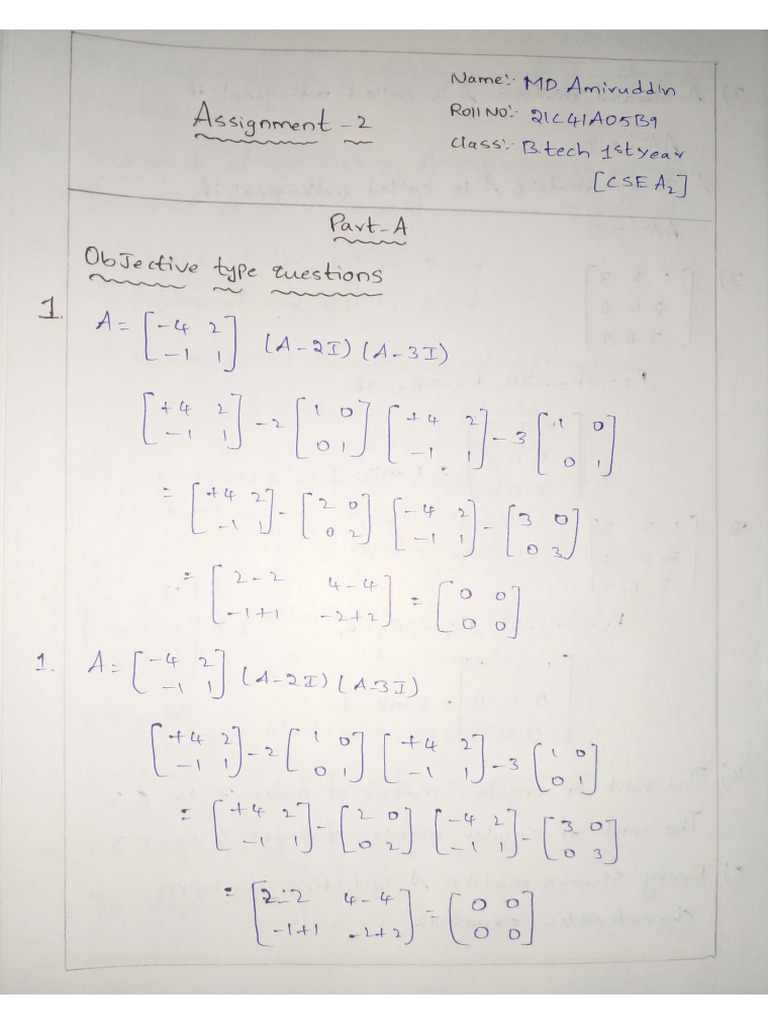 Name:- MD. Amiruddin
Assignment - 2
Roll No:- 21C41A05B9
Class:- B.tech 1st year
[CSE A2]
Part-A
Objective type questions
1. A = [-4 2; -1 1] (A-2I) (A-3I)
[+4 2; -1 1] -2 [1 0; 0 1] [+4 2; -1 1] -3 [1 0; 0 1]
= [+4 2; -1 1] - [2 0; 0 2] [-4 2; -1 1] - [3 0; 0 3]
= [2-2 4-4; -1+1 -2+2] = [0 0; 0 0]
1. A = [-4 2; -1 1] (A-2I) (A-3I)
[+4 2; -1 1] -2 [1 0; 0 1] [+4 2; -1 1] -3 [1 0; 0 1]
= [+4 2; -1 1] - [2 0; 0 2] [-4 2; -1 1] - [3 0; 0 3]
= [2-2 4-4; -1+1 -2+2] = [0 0; 0 0]